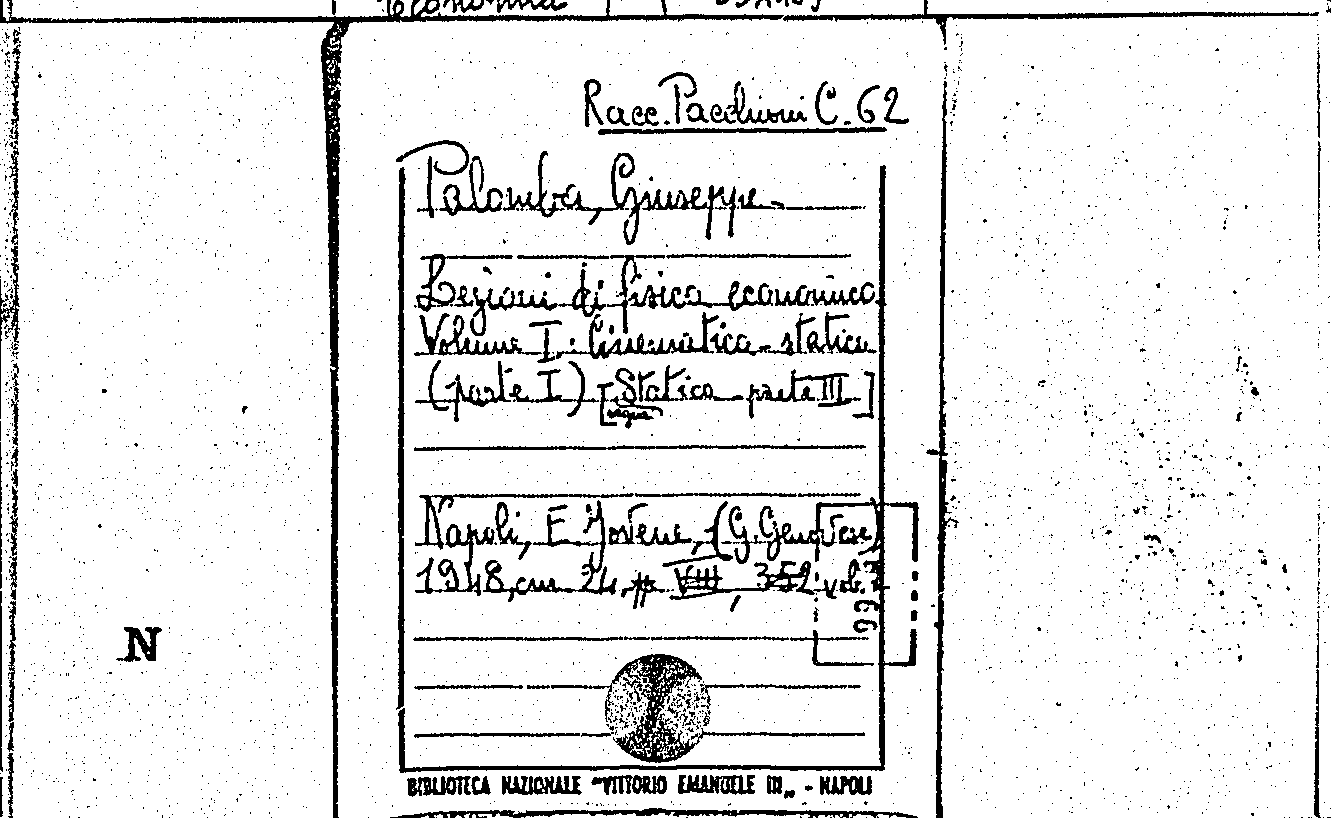 Economia
Racc. Pacchioni C. 62
Palomba, Giuseppe.
Lezioni di fisica economica.
Volume I: Cinematica - statica
(parte I) [Statica - parte III]
segue
Napoli, E. Jovene, (G. Genovese)
1948, cm. 24, pp. VIII, 352 vol.
N
BIBLIOTECA NAZIONALE "VITTORIO EMANUELE III„ - NAPOLI